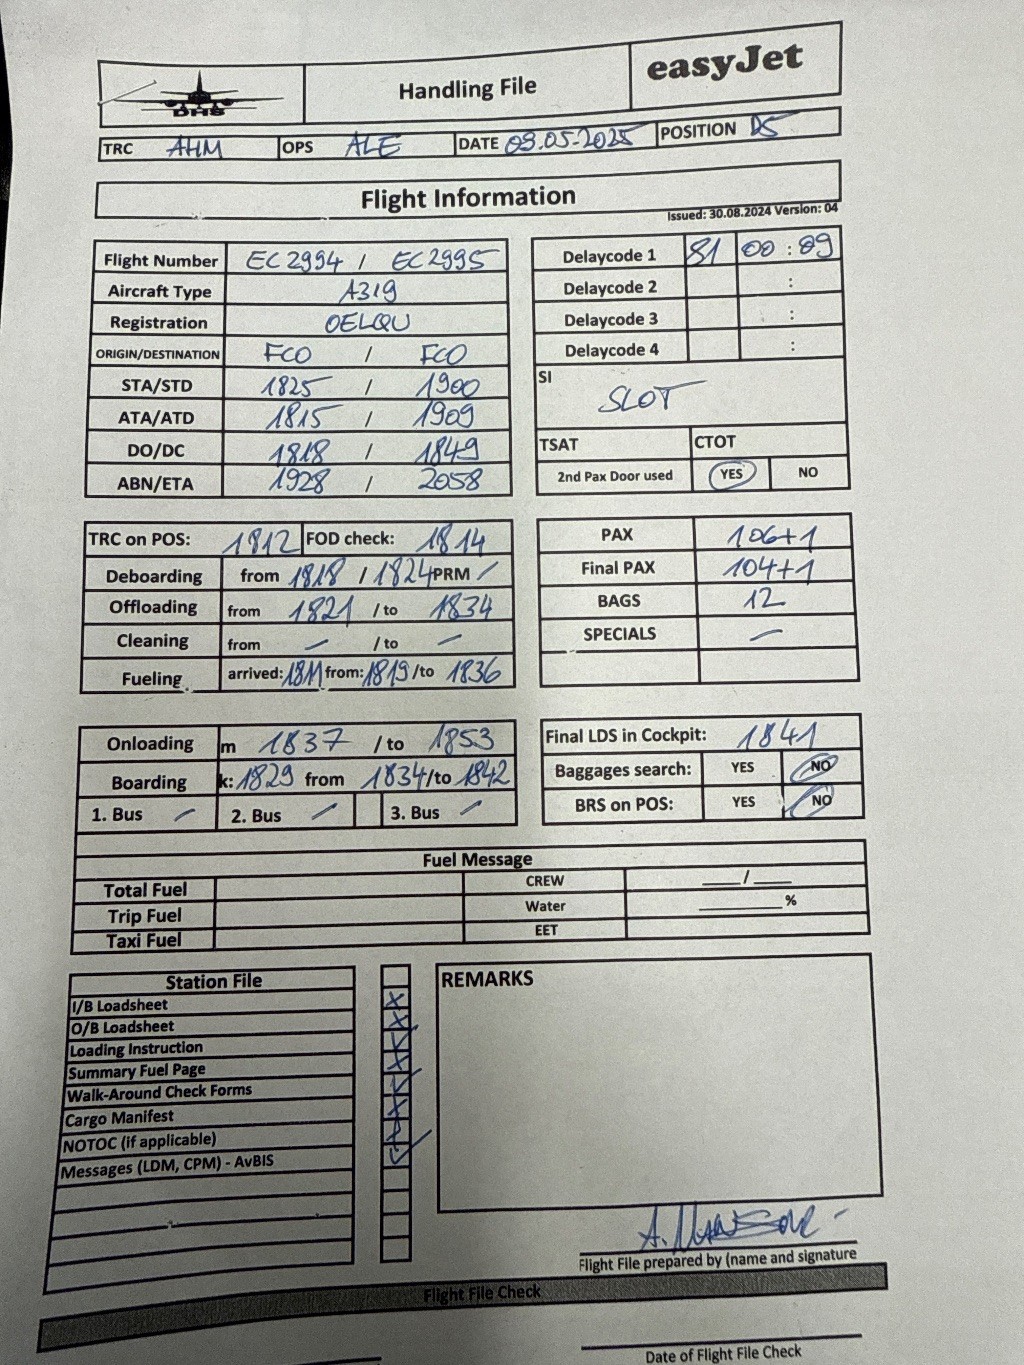 DHS
Handling File
easyJet
TRC AHM OPS ALE DATE 09.05-2025 POSITION D5
Flight Information
Issued: 30.08.2024 Version: 04
Flight Number EC2994 / EC2995
Aircraft Type A319
Registration OELQU
ORIGIN/DESTINATION FCO / FCO
STA/STD 1825 / 1900
ATA/ATD 1815 / 1909
DO/DC 1818 / 1849
ABN/ETA 1928 / 2058
Delaycode 1 81 00:09
Delaycode 2 :
Delaycode 3 :
Delaycode 4 :
SI
SLOT
TSAT CTOT
2nd Pax Door used YES NO
TRC on POS: 1812 FOD check: 1814
Deboarding from 1818 / 1824 PRM /
Offloading from 1821 / to 1834
Cleaning from – / to –
Fueling arrived: 1811 from: 1819 /to 1836
PAX 106+1
Final PAX 104+1
BAGS 12
SPECIALS –
Onloading m 1837 / to 1853
Boarding k: 1829 from 1834/to 1842
1. Bus – 2. Bus – 3. Bus –
Final LDS in Cockpit: 1841
Baggages search: YES NO
BRS on POS: YES NO
Fuel Message
Total Fuel CREW ___/___
Trip Fuel Water ______%
Taxi Fuel EET
Station File
I/B Loadsheet
O/B Loadsheet
Loading Instruction
Summary Fuel Page
Walk-Around Check Forms
Cargo Manifest
NOTOC (if applicable)
Messages (LDM, CPM) - AvBIS
REMARKS
Flight File prepared by (name and signature
Flight File Check
Date of Flight File Check